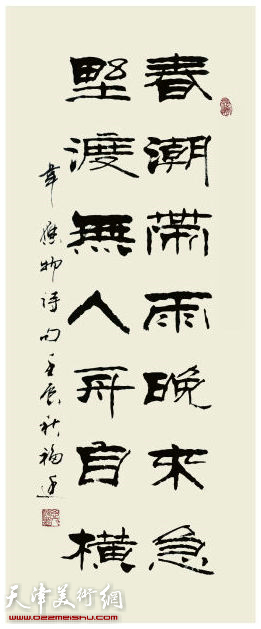 春潮带雨晚来急
野渡無人舟自横
韋應物詩句壬辰秋福運
天津美術網
www.022meishu.com